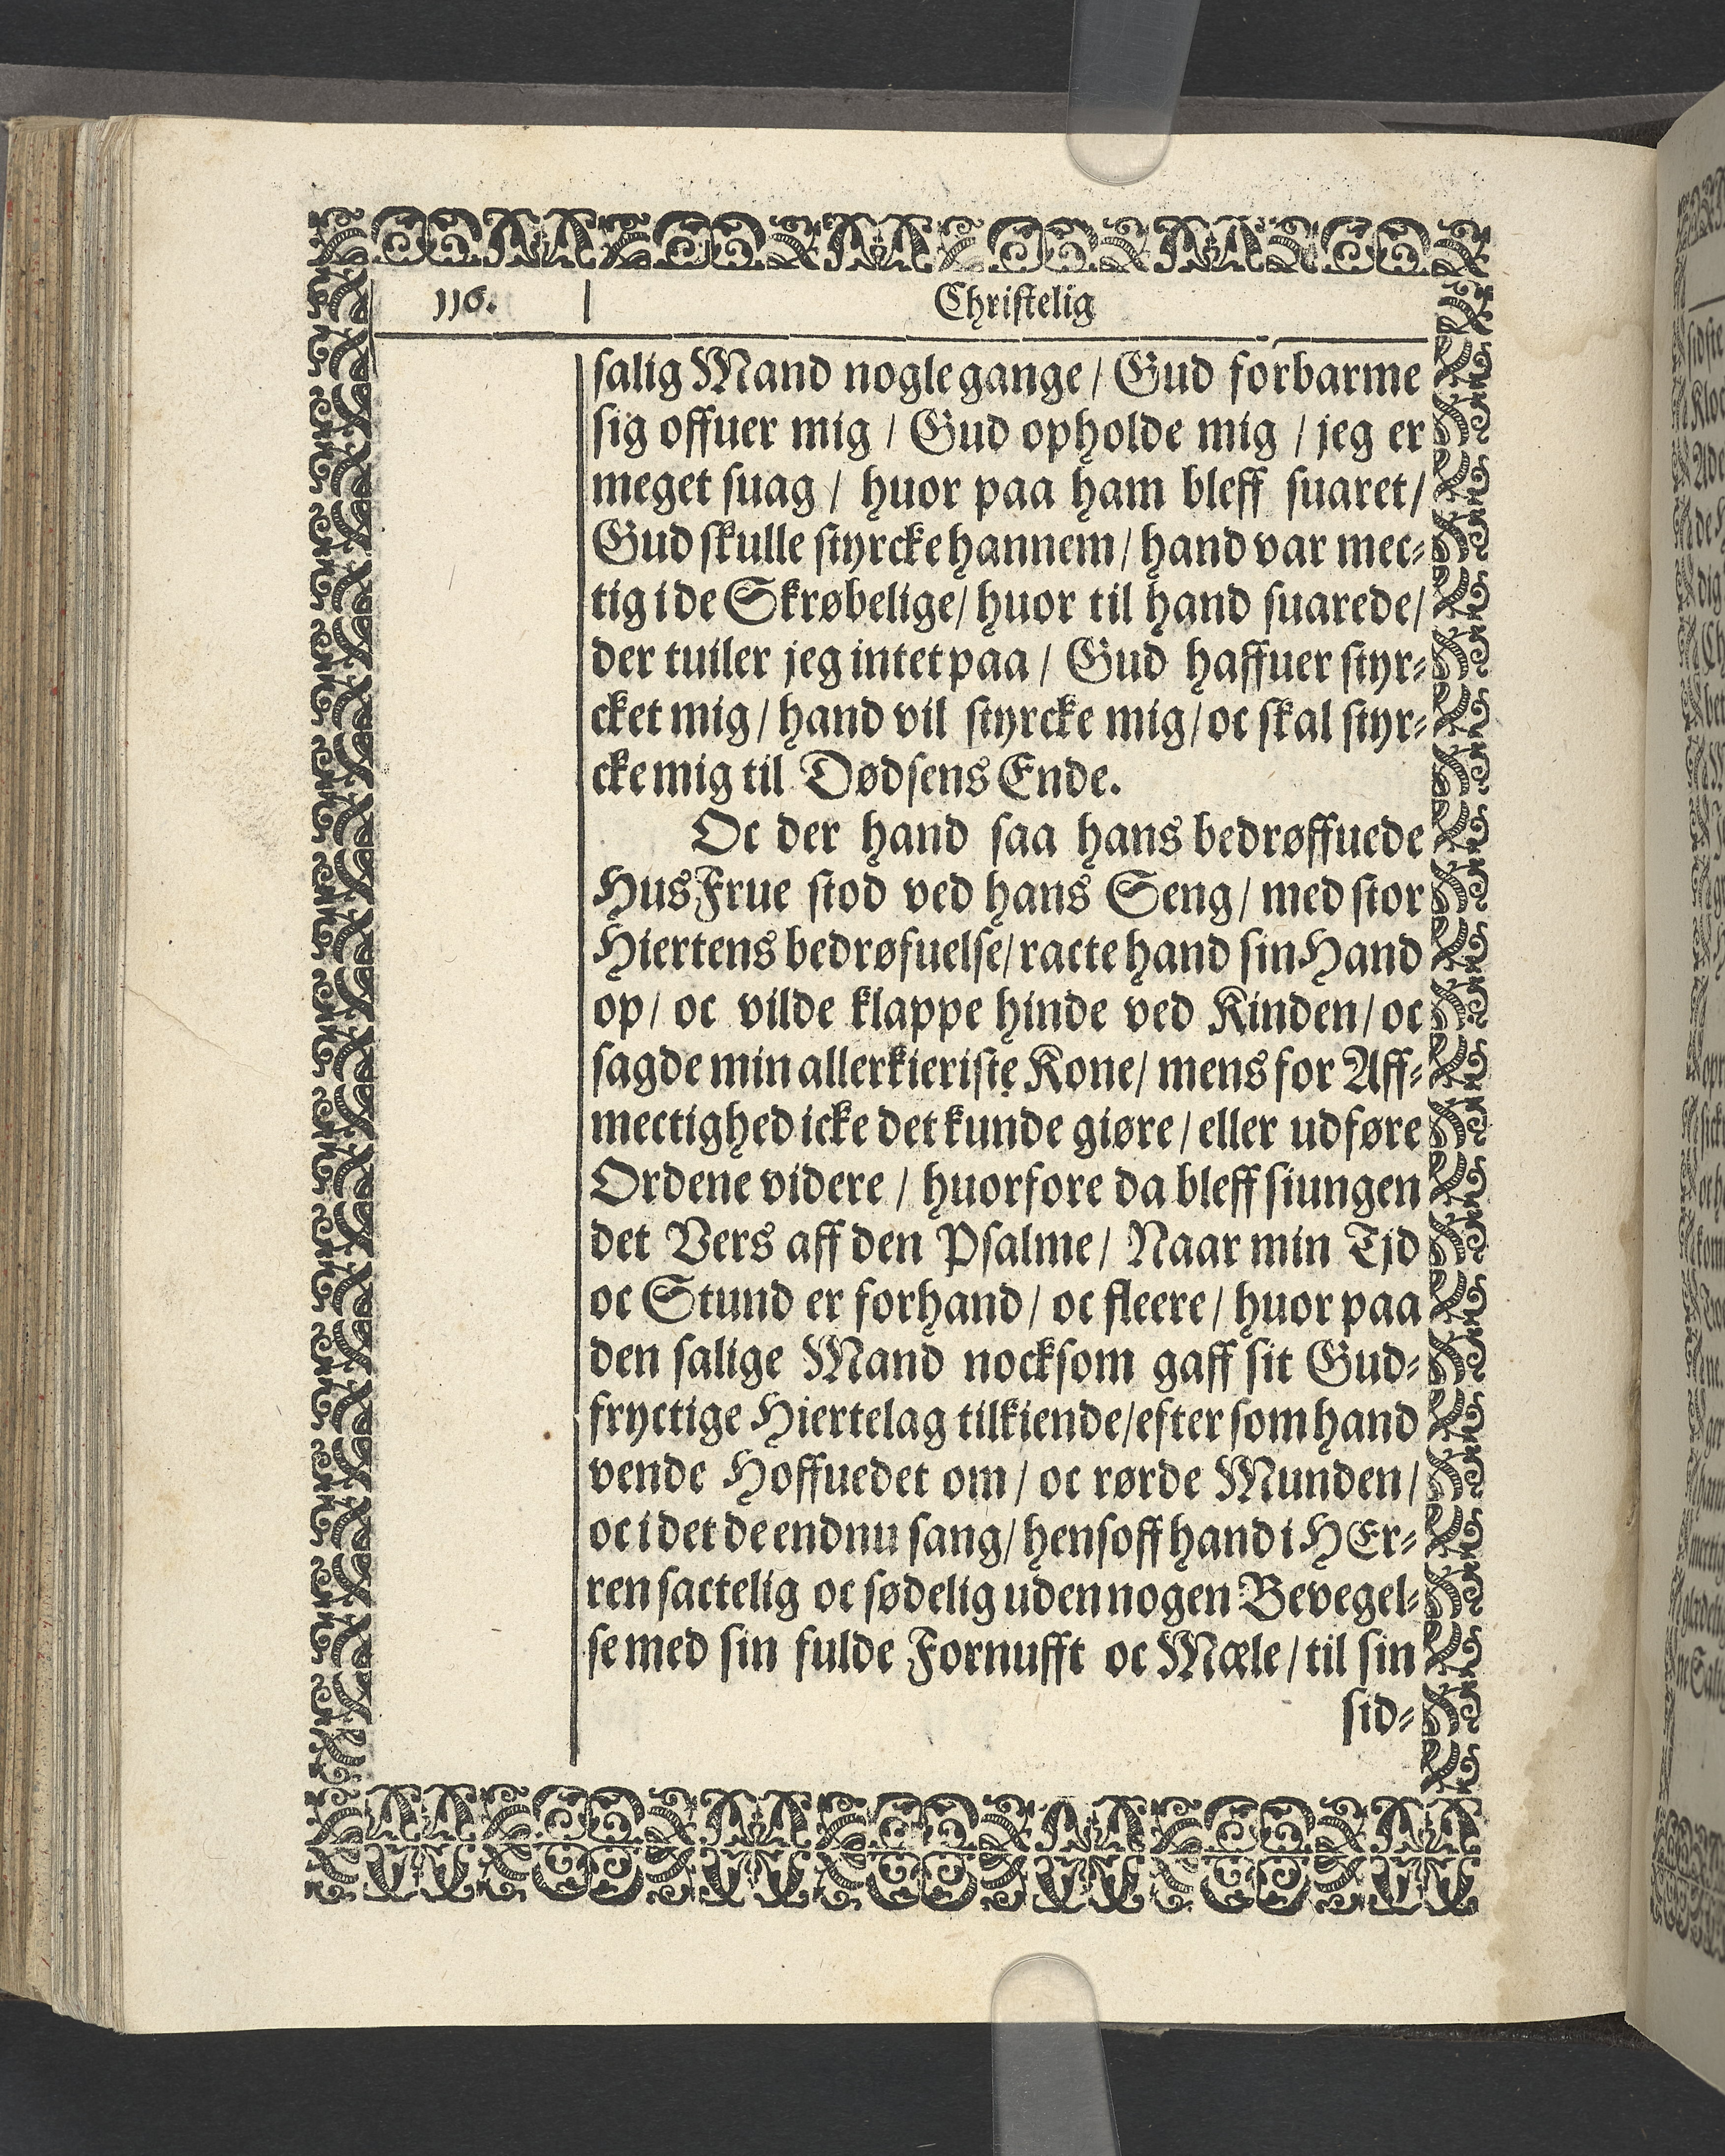 116.
Christelig
salig Mand nogle gange / Gud forbarme
sig offuer mig / Gud opholde mig / jeg er
meget suag / huor paa ham bleff suaret /
Gud skulle styrcke hannem / hand var mec-
tig i de Skrøbelige / huor til hand suarede /
der tuiler jeg intet paa / Gud haffuer styr-
cket mig / hand vil styrcke mig / oc skal styr-
cke mig til Dødsens Ende.
Oc der hand saa hans bedrøffuede
HusFrue stod ved hans Seng / med stor
Hiertens bedrøfuelse / racte hand sin Hand
op / oc vilde klappe hinde ved Kinden / oc
sagde min allerkieriste Kone / mens for Aff-
mectighed icke det kunde giøre / eller udføre
Ordene videre / huorfore da bleff siungen
det Vers aff den Psalme / Naar min Tjd
oc Stund er forhand / oc fleere / huor paa
den salige Mand nocksom gaff sit Gud-
fryctige Hiertelag tilkiende / efter som hand
vende Hoffuedet om / oc rørde Munden /
oc i det de endnu sang / hensoff hand i HEr-
ren sactelig oc sødelig uden nogen Bevegel-
se med sin fulde Fornufft oc Mæle / til sin
sid-